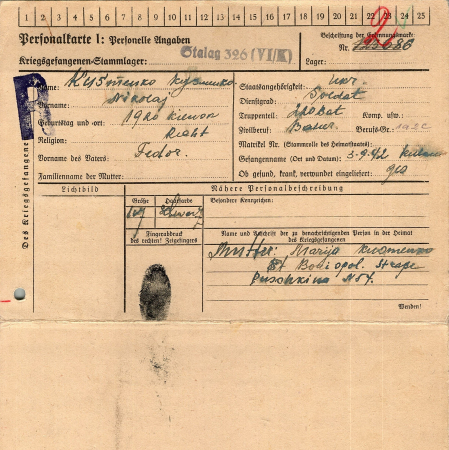 1 2 3 4 5 6 7 8 9 10 11 12 13 14 15 16 17 18 19 20 21 22 23 24 25
Personalkarte I: Personelle Angaben
Kriegsgefangenen-Stammlager: Stalag 326 (VI/K)
Beschriftung der Erkennungsmarke
Nr.
Lager:
Des Kriegsgefangenen
Name: Kusmenko
Vorname: Nikolaj
Geburtstag und -ort:
Religion:
Vorname des Vaters: Fedor.
Familienname der Mutter:
Staatsangehörigkeit: Ukr.
Dienstgrad: Soldat
Truppenteil: Komp. usw.:
Zivilberuf: Bauer Berufs-Gr.:
Matrikel Nr. (Stammrolle des Heimatstaates):
Gefangennahme (Ort und Datum): 3.9.42
Ob gesund, krank, verwundet eingeliefert:
Lichtbild
Nähere Personalbeschreibung
Größe
Haarfarbe
Besondere Kennzeichen:
Schwarz
Fingerabdruck
des rechten! Zeigefingers
Name und Anschrift der zu benachrichtigenden Person in der Heimat
des Kriegsgefangenen
Mutter: Marija Kusmenko
St Boripol. Straße
Puschkina N54.
Wenden!